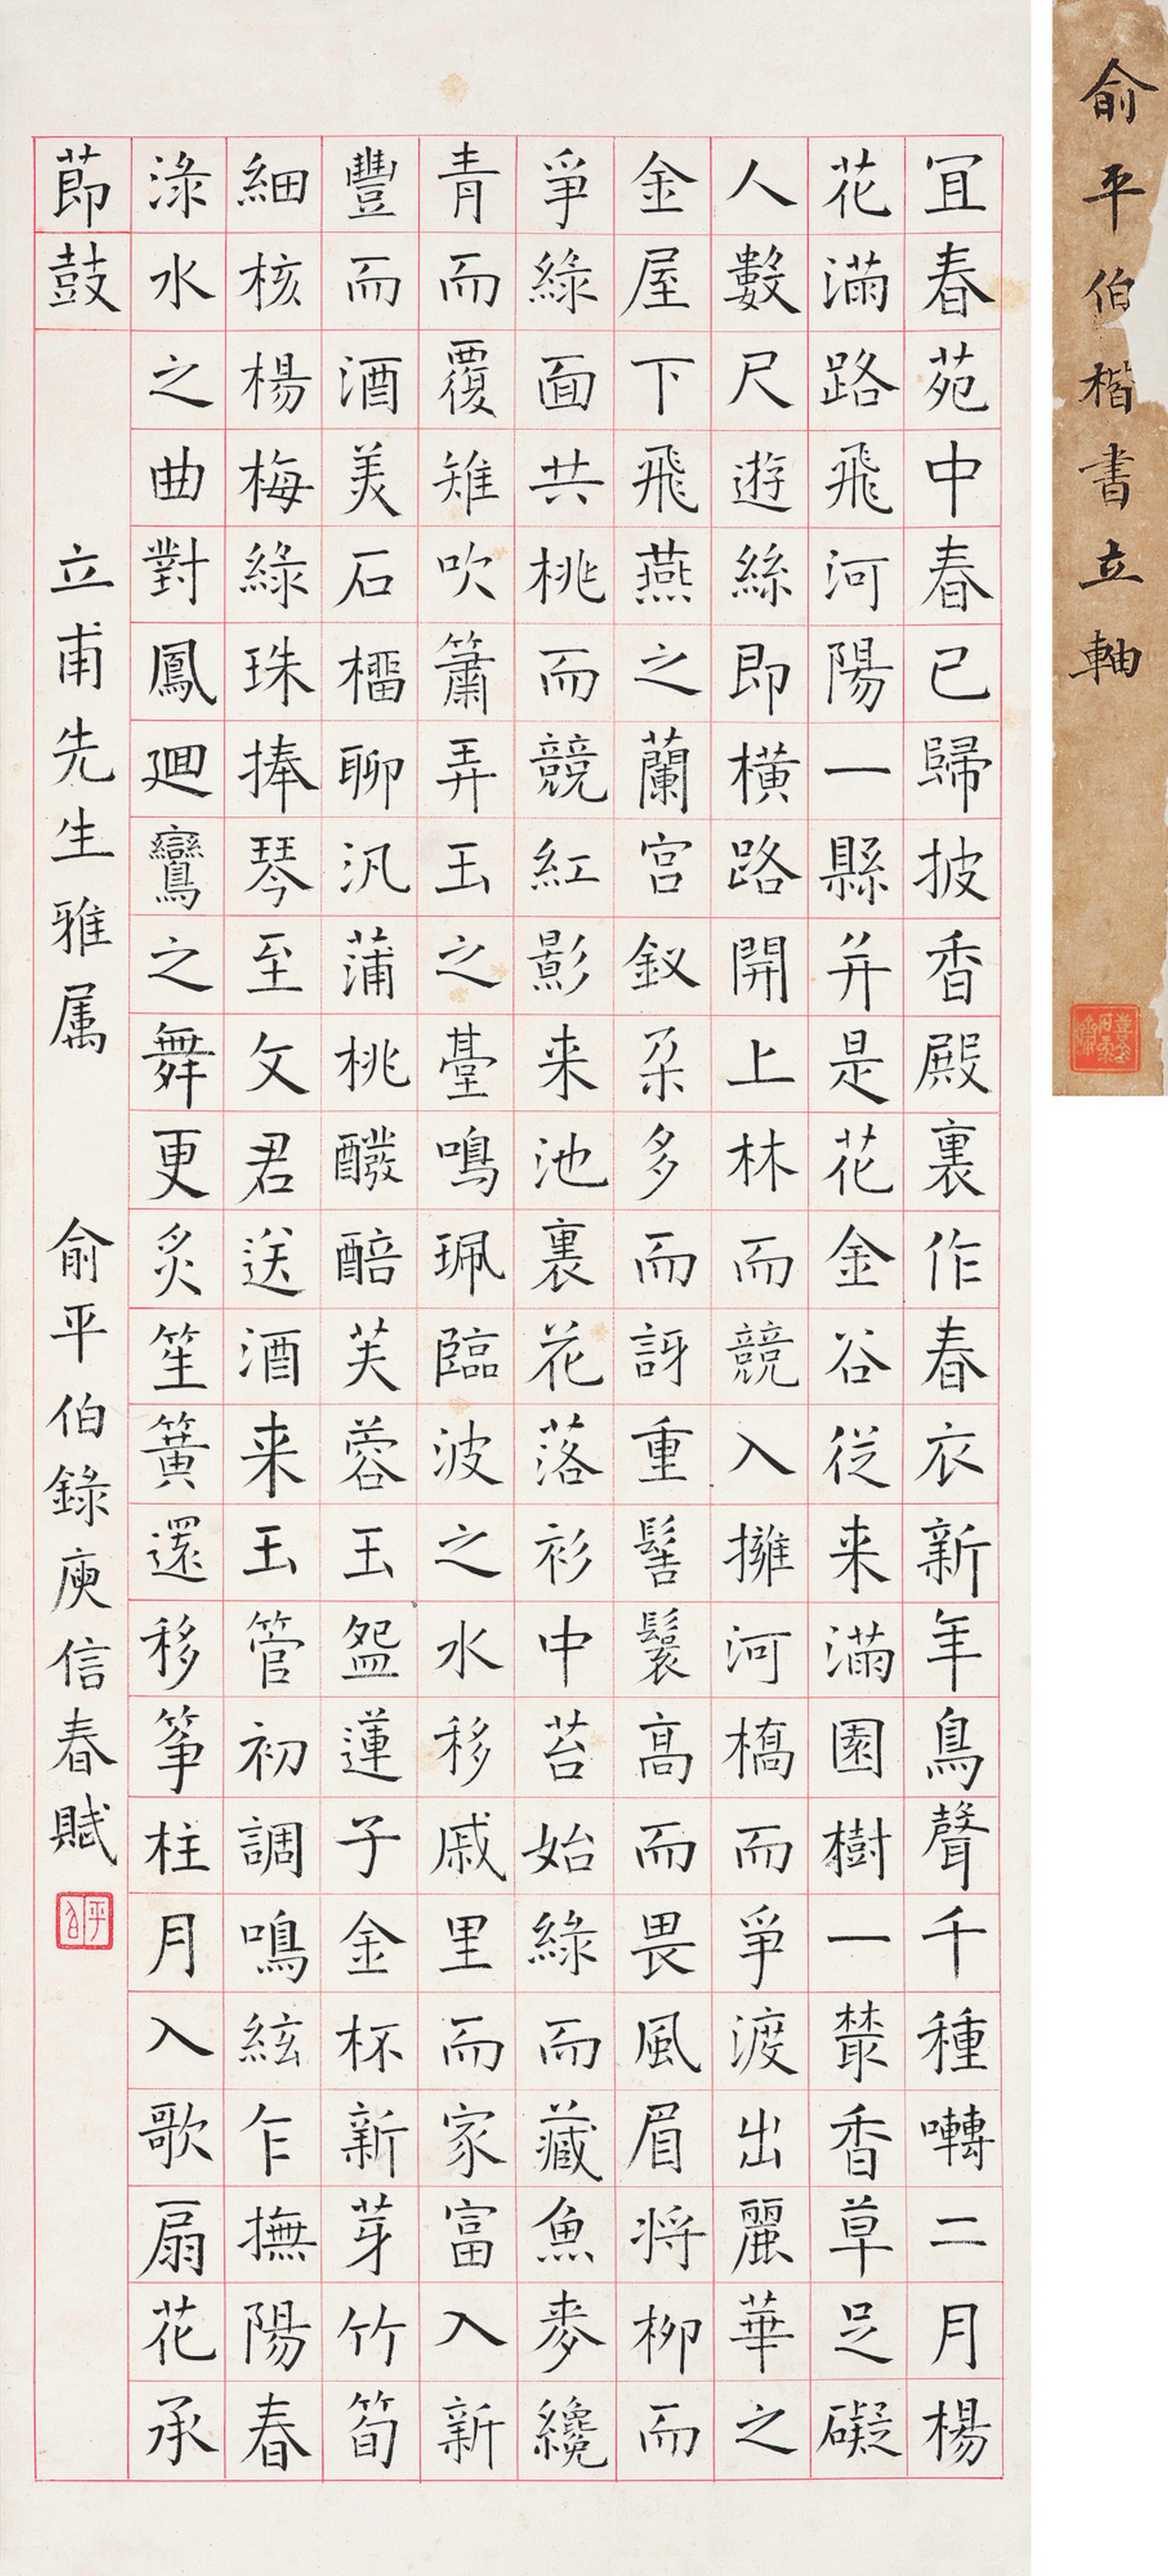 冝春苑中春已歸披香殿裏作春衣新年鳥聲千種囀二月楊
花滿路飛河陽一縣并是花金谷從来滿園樹一叢香草足礙
人數尺遊絲即橫路開上林而競入擁河橋而爭渡出麗華之
金屋下飛燕之蘭宮釵朶多而訝重髻鬟高而畏風眉將柳而
爭綠面共桃而競紅影来池裏花落衫中苔始綠而藏魚麥纔
青而覆雉吹簫弄玉之臺鳴珮臨波之水移戚里而家富入新
豐而酒美石榴聊汎蒲桃醱醅芙蓉玉盌蓮子金杯新芽竹筍
細核楊梅綠珠捧琴至文君送酒来玉管初調鳴絃乍撫陽春
淥水之曲對鳳迴鸞之舞更炙笙簧還移筝柱月入歌扇花承
莭鼓
立甫先生雅属
俞平伯錄庾信春賦
平伯
俞平伯楷書立軸